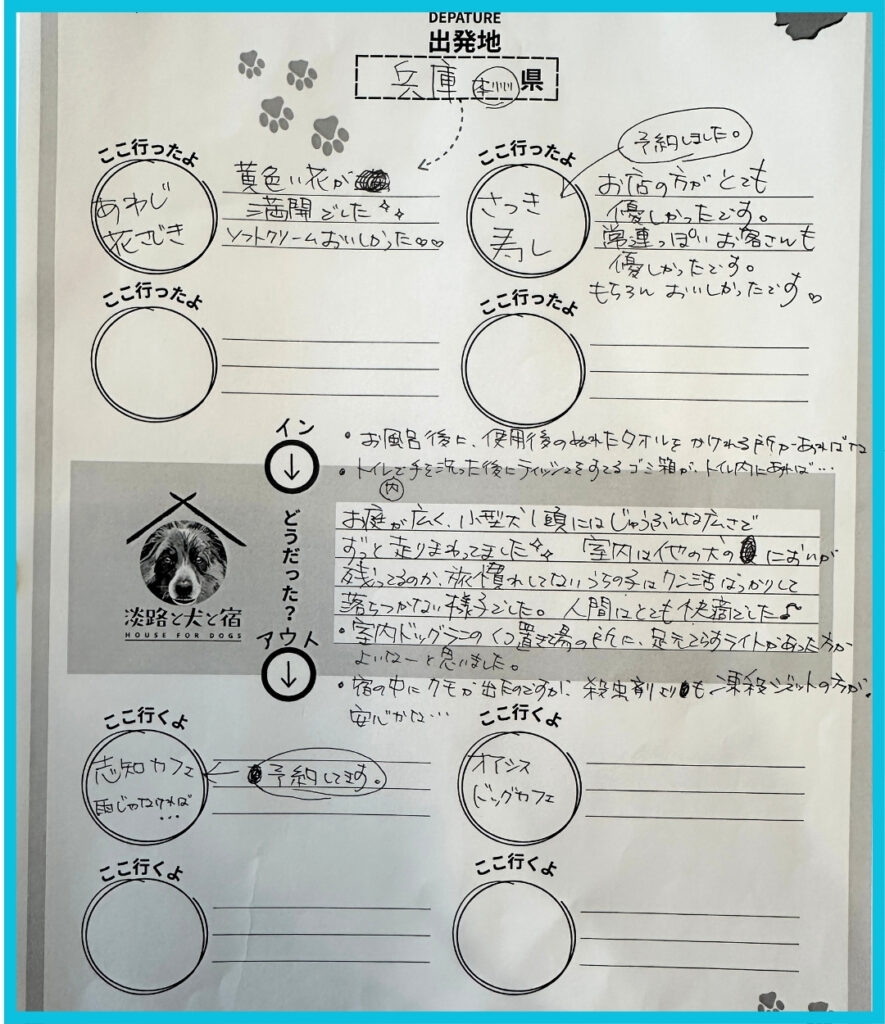 DEPATURE
出発地
兵庫 県
予約しました。
ここ行ったよ
あわじ
花さじき
黄色い花が
満開でした
ソフトクリームおいしかった♡♡
ここ行ったよ
さつき
寿し
お店の方がとても
優しかったです。
常連っぽいお客さんも
優しかったです。
もちろんおいしかったです♡
ここ行ったよ
ここ行ったよ
イン
・お風呂後に、使用後のぬれたタオルをかけれる所があればな
・トイレで手を洗った後にティッシュをすてるゴミ箱が、トイレ内にあれば…
内
どうだった?
お庭が広く、小型犬1頭にはじゅうぶんな広さで
ずっと走りまわってました 室内は他の犬のにおいが
残ってるのか、旅慣れしてないうちの子はクン活ばっかりして
落ちつかない様子でした。人間はとても快適でした♪
・室内ドッグランのくつ置き場の所に、足元てらすライトがあった方が
よいなーと思いました。
・宿の中にクモが出たのですが、殺虫剤よりも凍殺ジェットの方が、
安心かな…
淡路と犬と宿
HOUSE FOR DOGS
アウト
ここ行くよ
志知カフェ
雨じゃなければ
…
予約してます。
ここ行くよ
オアシス
ドッグカフェ
ここ行くよ
ここ行くよ